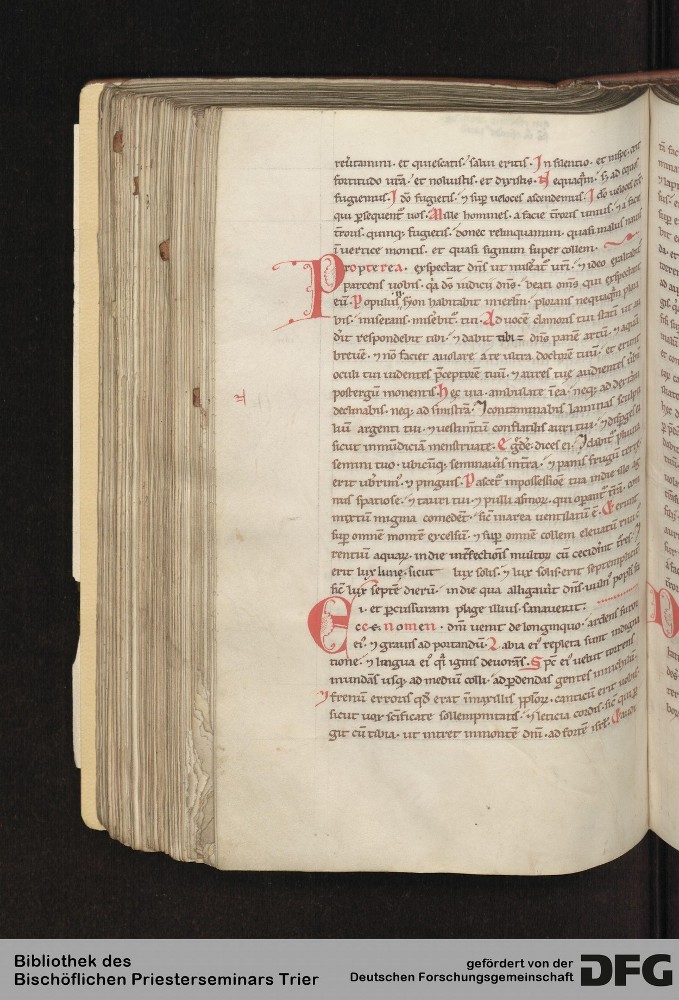 reu̅tamini · et quiescatis · salui eritis · In silentio · et in spe · erit
fortitudo ur̅a · et noluistis · et dixistis · Nequaqm̅ · s; ad equos
fugiemus · Ido̅ fugietis · ⁊ sup̅ ueloces ascendemus · Ido̅ ueloces er̅t
qui ꝑsequent᷑ uos · Mille homines · a facie t̅roris unius · ⁊ a facie
t̅roris · quinq; fugietis · donec relinquamini · quasi malus nauis
i̅ uertice montis · et quasi signum super collem ·
Propterea · exspectat dn̅s ut misereat᷑ ur̅i · ⁊ ideo exaltabit᷑
parcens uobis · qa̅ ds̅ iudicii dn̅s · beati om̅s qui exspectant
eu̅ · Populus syon habitabit in ierl̅m · plorans nequaqm̅ plora
bis · miserans · miserebit᷑ tui · Ad uoce̅ clamoris tui statī ut au
dīt respondebit tibi · ⁊ dabit tibi = dn̅s pane̅ artu̅ · ⁊ aqua̅
breue̅ · ⁊ no̅ faciet auolare a te ultra doctore̅ tuu̅ · et erunt
oculi tui uidentes p̅ceptore̅ tuu̅ · ⁊ aures tue audientes u̅bu̅
postergu̅ monentis · hec uia · ambulate i̅ ea · neq; ad dextera̅
declinabis · neq; ad sinistra̅ · ⁊ contaminabis laminas sculpti
liu̅ argenti tui · ⁊ uestim̅tu̅ conflatilis auri tui · ⁊ disperges ea
sicut inmu̅dicia̅ menstruate · Egr̅de̅ · dices ei · ⁊ dabit᷑ pluuia
semini tuo · ubicu̅q; seminau̅is in t̅ra · ⁊ panis frugu̅ terre
erit ub̅rim᷒ · ⁊ pinguis · Pascet᷑ in possessio̅e tua in die illo ag
nus spatiose · ⁊ tauri tui · ⁊ pulli asinoꝝ · qui operant᷑ t̅ra̅ · com
mixtu̅ migma comedent · sic̅ in area uentilatu̅ e̅ · Et erunt
sup̅ omne̅ monte̅ excelsu̅ · ⁊ sup̅ omne̅ collem eleuatu̅ riui
rentiu̅ aquaꝝ · in die int̅fectionis multoꝝ cu̅ cecideri̅t t̅res · ⁊
erit lux lune · sicut lux solis · ⁊ lux solis · erit septempliciter
sic̅ lux septe̅ dieru̅ · in die qua alligau̅it dn̅s · uuln᷒ popl̅i su
i · et ꝑcussuram plage illius · sanauerit ·
Ecce · nomen · dn̅i uenit de longinquo · ardens furor
ei᷒ · ⁊ grauis ad portandu̅ · Labia ei᷒ repleta sunt indigna
tione · ⁊ lingua ei᷒ qi̅ ignis deuorans · Spc̅ ei᷒ uelut torrens
inundans usq; ad mediu̅ colli · ad ꝑdendas gentes in nichilu̅ ·
⁊ frenu̅ erroris qd̅ erat in maxillis pp̅loꝝ · canticu̅ erit uobis
sicut uox sc̅ificate sollempnitatis · ⁊ leticia cordis · sic̅ qui ꝑ
git cu̅ tibia · ut intret in monte̅ dn̅i · ad forte̅ isrl̅ · Et audi
Bibliothek des
Bischöflichen Priesterseminars Trier
gefördert von der
Deutschen Forschungsgemeinschaft
DFG